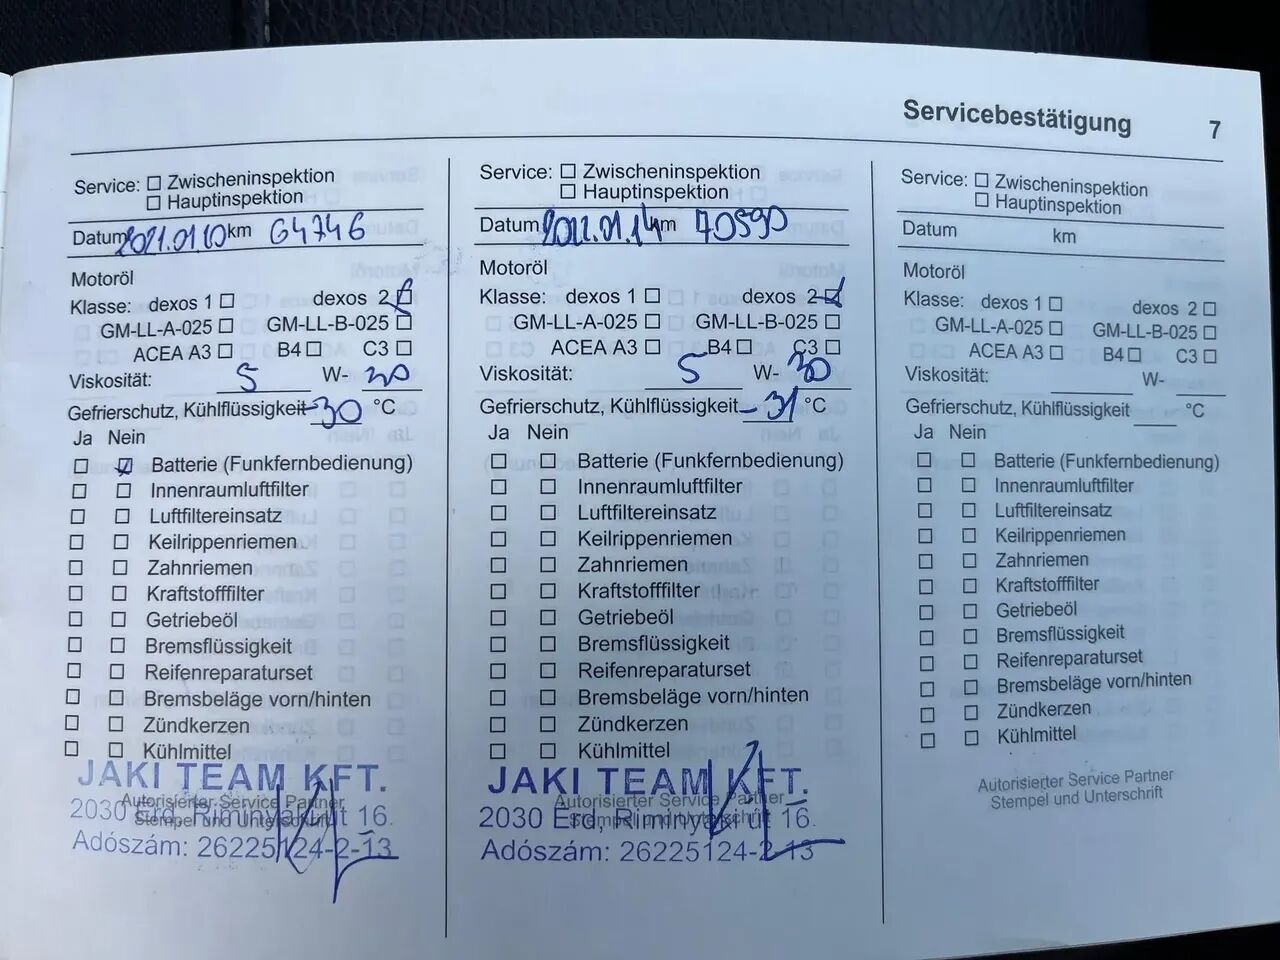 Servicebestätigung 7
Service: Zwischeninspektion
Hauptinspektion
Datum 2021.01.10 km 64746
Motoröl
Klasse: dexos 1 dexos 2
GM-LL-A-025 GM-LL-B-025
ACEA A3 B4 C3
Viskosität: 5 W- 30
Gefrierschutz, Kühlflüssigkeit -30 °C
Ja Nein
Batterie (Funkfernbedienung)
Innenraumluftfilter
Luftfiltereinsatz
Keilrippenriemen
Zahnriemen
Kraftstofffilter
Getriebeöl
Bremsflüssigkeit
Reifenreparaturset
Bremsbeläge vorn/hinten
Zündkerzen
Kühlmittel
JAKI TEAM KFT.
Autorisierter Service Partner
2030 Érd, Riminyáki út 16.
Stempel und Unterschrift
Adószám: 26225124-2-13
Service: Zwischeninspektion
Hauptinspektion
Datum 2022.01.14 km 70590
Motoröl
Klasse: dexos 1 dexos 2
GM-LL-A-025 GM-LL-B-025
ACEA A3 B4 C3
Viskosität: 5 W- 30
Gefrierschutz, Kühlflüssigkeit -31 °C
Ja Nein
Batterie (Funkfernbedienung)
Innenraumluftfilter
Luftfiltereinsatz
Keilrippenriemen
Zahnriemen
Kraftstofffilter
Getriebeöl
Bremsflüssigkeit
Reifenreparaturset
Bremsbeläge vorn/hinten
Zündkerzen
Kühlmittel
JAKI TEAM KFT.
Autorisierter Service Partner
2030 Érd, Riminyáki út 16.
Stempel und Unterschrift
Adószám: 26225124-2-13
Service: Zwischeninspektion
Hauptinspektion
Datum km
Motoröl
Klasse: dexos 1 dexos 2
GM-LL-A-025 GM-LL-B-025
ACEA A3 B4 C3
Viskosität: W-
Gefrierschutz, Kühlflüssigkeit °C
Ja Nein
Batterie (Funkfernbedienung)
Innenraumluftfilter
Luftfiltereinsatz
Keilrippenriemen
Zahnriemen
Kraftstofffilter
Getriebeöl
Bremsflüssigkeit
Reifenreparaturset
Bremsbeläge vorn/hinten
Zündkerzen
Kühlmittel
Autorisierter Service Partner
Stempel und Unterschrift